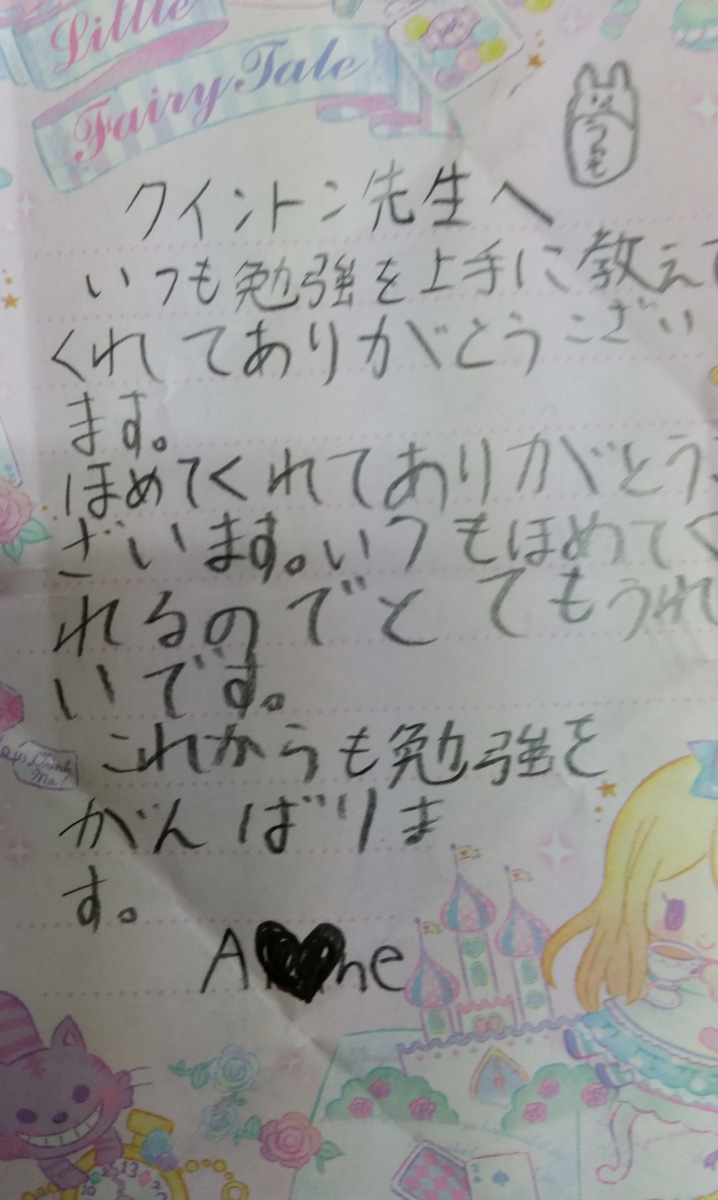 Little
Fairy Tale
うさも
クイントン先生へ
いつも勉強を上手に教えて
くれてありがとうござい
ます。
ほめてくれてありがとう
ざいます。いつもほめてく
れるのでとてもうれ
いです。
これからも勉強を
がんばりま
す。
Drink
Me!
13